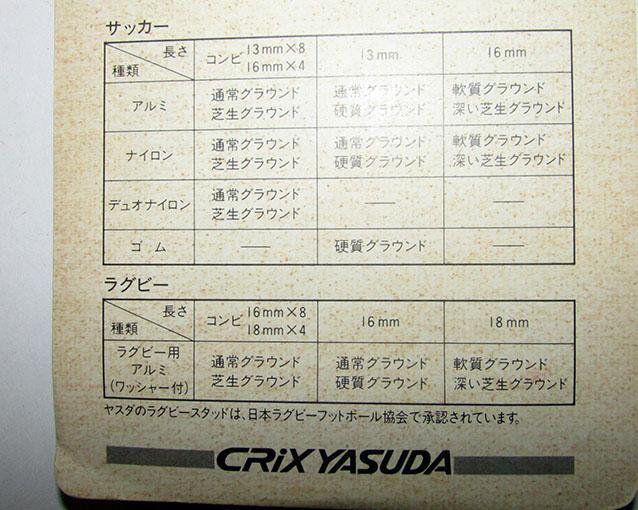 サッカー
長さ
種類
コンビ 13mm×8
16mm×4
13mm
16mm
アルミ
通常グラウンド
芝生グラウンド
通常グラウンド
硬質グラウンド
軟質グラウンド
深い芝生グラウンド
ナイロン
通常グラウンド
芝生グラウンド
通常グラウンド
硬質グラウンド
軟質グラウンド
深い芝生グラウンド
デュオナイロン
通常グラウンド
芝生グラウンド
—
—
ゴム
—
硬質グラウンド
—
ラグビー
長さ
種類
コンビ 16mm×8
18mm×4
16mm
18mm
ラグビー用
アルミ
(ワッシャー付)
通常グラウンド
芝生グラウンド
通常グラウンド
硬質グラウンド
軟質グラウンド
深い芝生グラウンド
ヤスダのラグビースタッドは、日本ラグビーフットボール協会で承認されています。
CRiX YASUDA